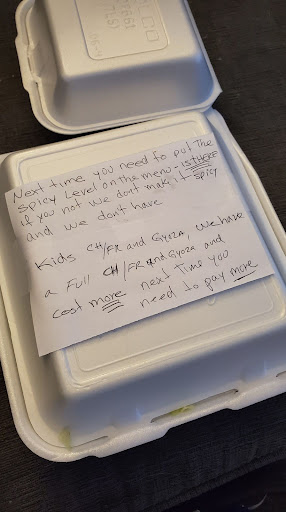 Next time you need to put the
spicy level on the menu - IS THERE
if you not we don't make it spicy
and we don't have
Kids CH/FR and Gyoza, we have
a Full CH/FR and Gyoza and
cost more next time you
need to pay more